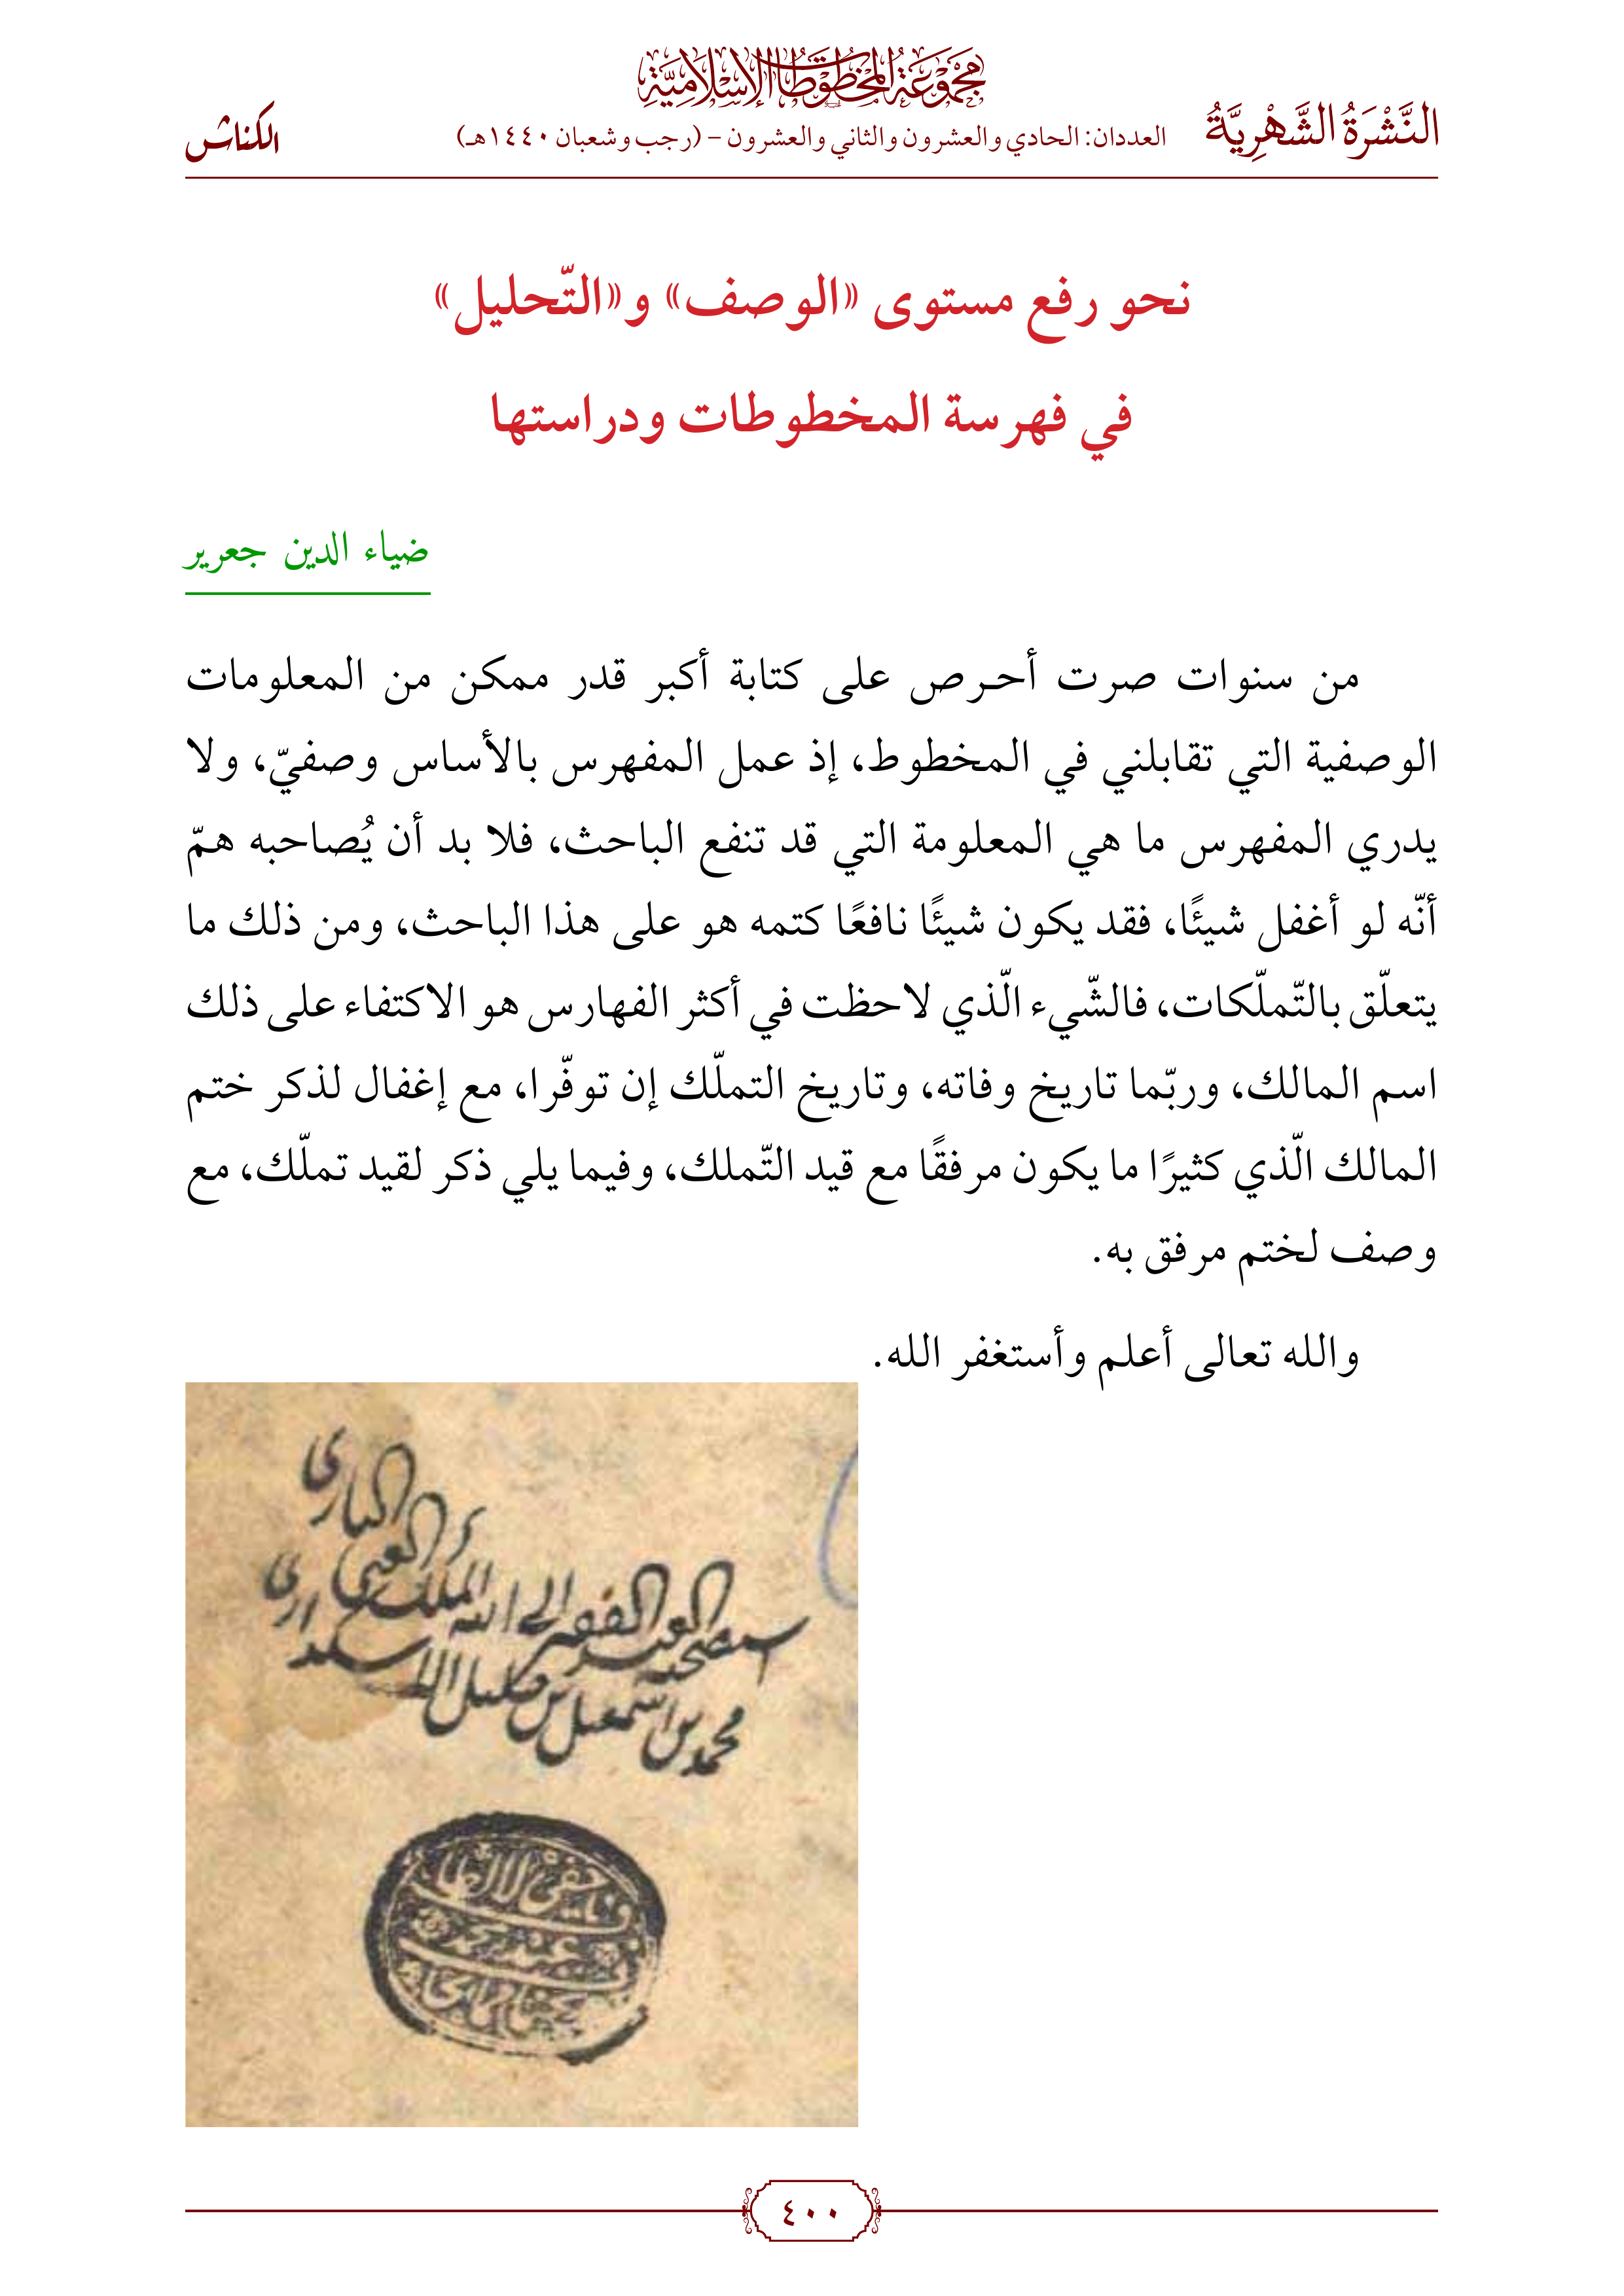 مَجْمُوعَةُ المَخْطُوطَاتِ الإِسْلَامِيَّةِ
النَّشْرَةُ الشَّهْرِيَّةُ
العددان: الحادي والعشرون والثاني والعشرون – (رجب وشعبان ١٤٤٠هـ)
الكناش
نحو رفع مستوى «الوصف» و«التّحليل»
في فهرسة المخطوطات ودراستها
ضياء الدين جعرير
من سنوات صرت أحرص على كتابة أكبر قدر ممكن من المعلومات
الوصفية التي تقابلني في المخطوط، إذ عمل المفهرس بالأساس وصفيّ، ولا
يدري المفهرس ما هي المعلومة التي قد تنفع الباحث، فلا بد أن يُصاحبه همّ
أنّه لو أغفل شيئًا، فقد يكون شيئًا نافعًا كتمه هو على هذا الباحث، ومن ذلك ما
يتعلّق بالتّملّكات، فالشّيء الّذي لاحظت في أكثر الفهارس هو الاكتفاء على ذلك
اسم المالك، وربّما تاريخ وفاته، وتاريخ التملّك إن توفّرا، مع إغفال لذكر ختم
المالك الّذي كثيرًا ما يكون مرفقًا مع قيد التّملك، وفيما يلي ذكر لقيد تملّك، مع
وصف لختم مرفق به.
والله تعالى أعلم وأستغفر الله.
البارى
العبد الفقير الى الله الملك الغنى
محمد بن اسمعيل بن خليل
٤٠٠